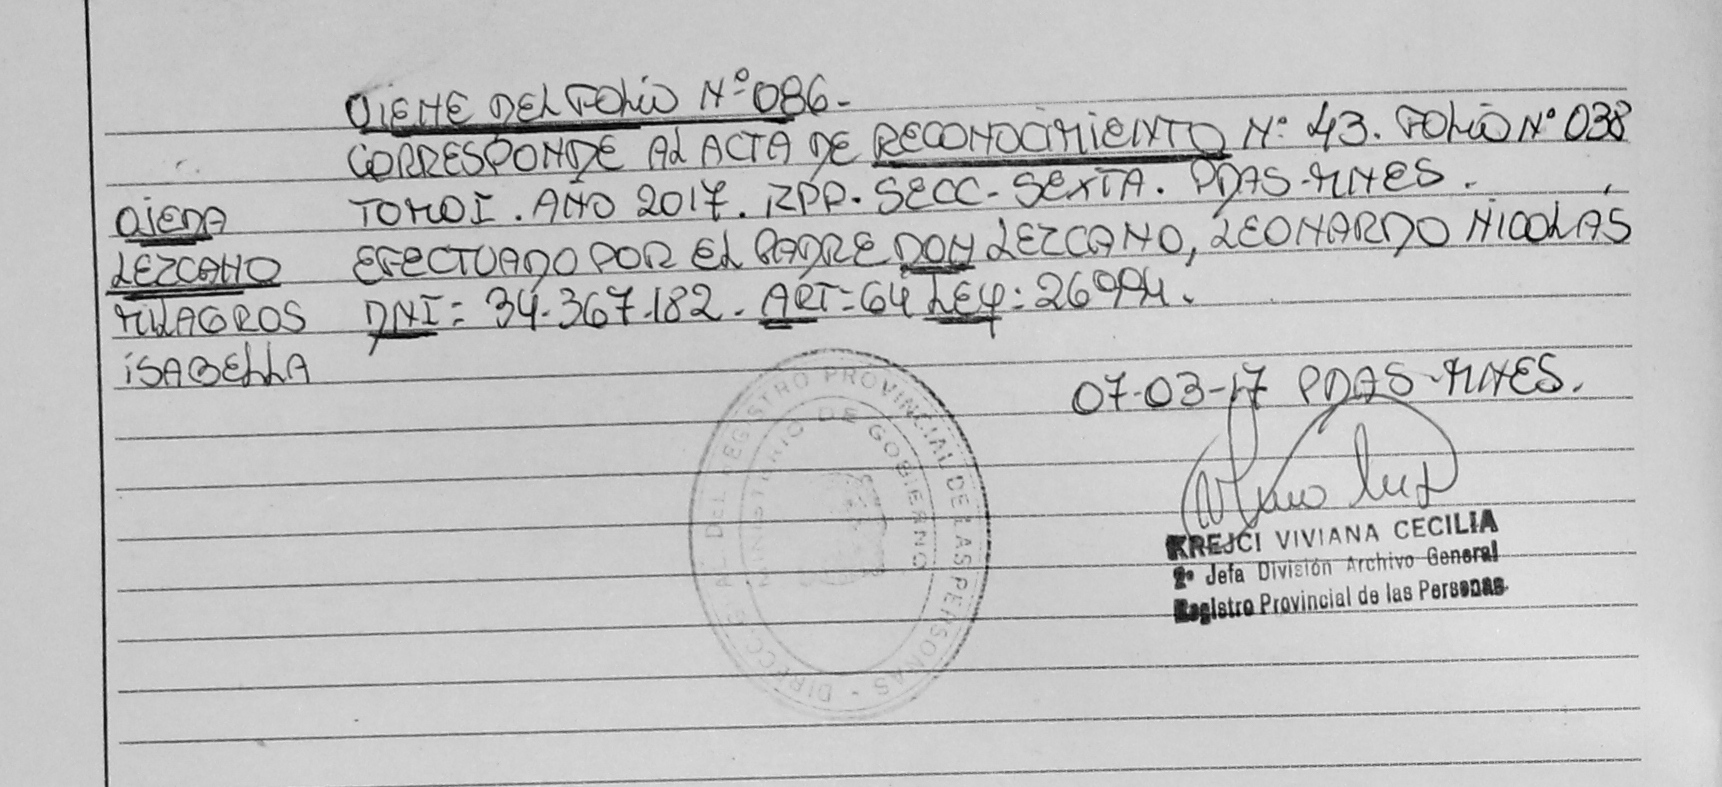 VIENE DEL FOLIO Nº 086-
CORRESPONDE AL ACTA DE RECONOCIMIENTO Nº 43. FOLIO Nº 038
OJEDA TOMO I. AÑO 2017. RPP. SECC- SEXTA. PDAS-MNES.
LEZCANO EFECTUADO POR EL PADRE DON LEZCANO, LEONARDO NICOLÁS
MILAGROS DNI= 34.367.182. ART=64 LEY: 26994.
ISABELLA
07-03-17 PDAS-MNES.
KREJCI VIVIANA CECILIA
2º Jefa División Archivo General
Registro Provincial de las Personas
DIRECC. GRAL. DEL REGISTRO PROVINCIAL DE LAS PERSONAS -
MINISTERIO DE GOBIERNO